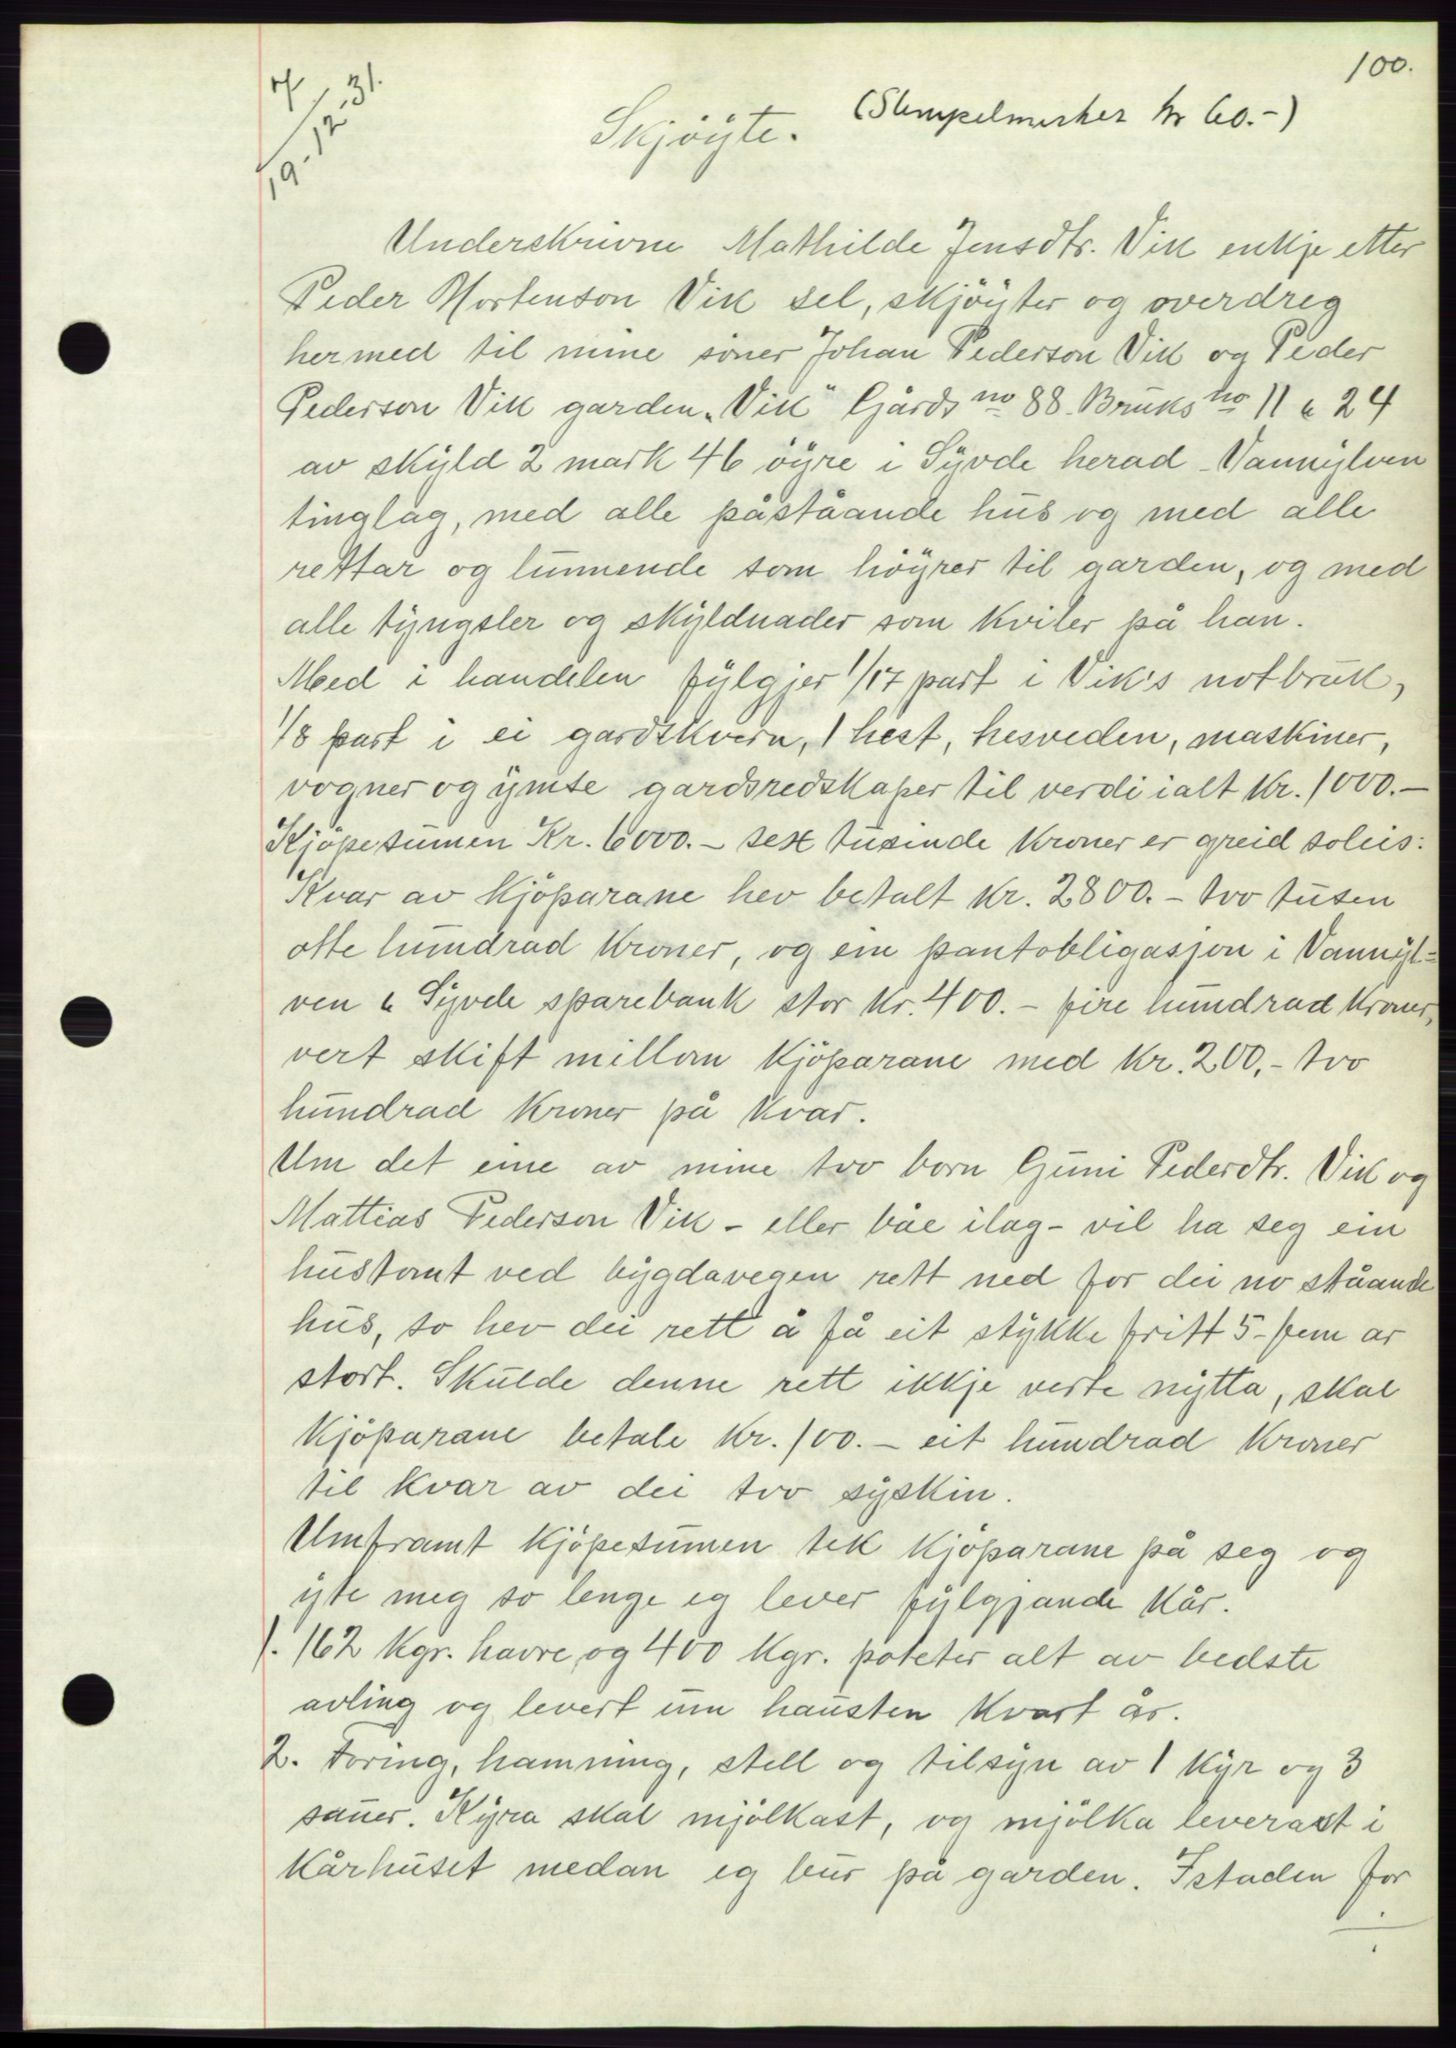 100.
7/19-12-31.
Skjöyte. (Stempelmerker kr 60.-)
Underskrivne Mathilde Jensdtr. Vik enkje etter
Peder Mortenson Vik sel, skjöyter og overdreg
hermed til mine söner Johan Pederson Vik og Peder
Pederson Vik garden „Vik" Gårds no 88. Bruks no 11 & 24
av skyld 2 mark 46 öyre i Syvde herad - Vannylven
tinglag, med alle påståande hus og med alle
rettar og lunnende som höyrer til garden, og med
alle tyngsler og skyldnader som kviler på han.
Med i handelen fylgjer 1/17 part i Vik's notbruk,
1/8 part i ei gardskvern, 1 hest, hesveden, maskiner,
vogner og ymse gardsredskaper til verdi ialt kr. 1000.-
Kjöpesumen Kr. 6000.- sex tusinde kroner er greid soleis:
Kvar av kjöparane hev betalt kr. 2800.- tvo tusen
otte hundrad kroner, og ein pantobligasjon i Vannyl=
ven & Syvde sparebank stor kr. 400.- fire hundrad kroner,
vert skift millom kjöparane med kr. 200,- tvo
hundrad kroner på kvar.
Um det eine av mine tvo born Guni Pederdtr. Vik og
Mattias Pederson Vik - eller båe ilag - vil ha seg ein
hustomt ved bygdavegen rett ned for dei no ståande
hus, so hev dei rett å få eit stykke fritt 5 - fem ar
stort. Skulde denne rett ikkje verte nytta, skal
kjöparane betale kr. 100.- eit hundrad kroner
til kvar av dei tvo syskin.
Umframt kjöpesumen tek kjöparane på seg og
yte meg so lenge eg lever fylgjande kår.
1. 162 kgr. havre og 400 kgr. poteter alt av bedste
avling og levert um hausten kvart år.
2. Foring, hamning, stell og tilsyn av 1 kyr og 3
sauer. Kyra skal mjölkast, og mjölka leverast i
kårhuset medan eg bur på garden. Istaden for